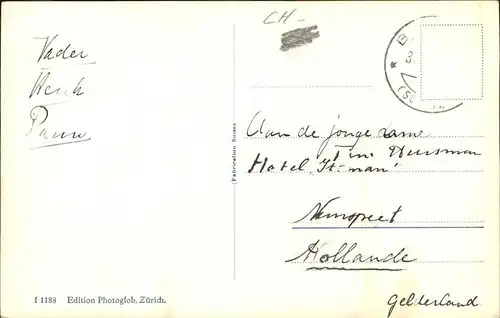 CH-
Vader
Henk
Fabrication Suisse
Aan de jonge dame
Tini Huisman
Hotel "Ittman"
Nunspeet
Hollande
Gelderland
f 1188 Edition Photoglob, Zürich.